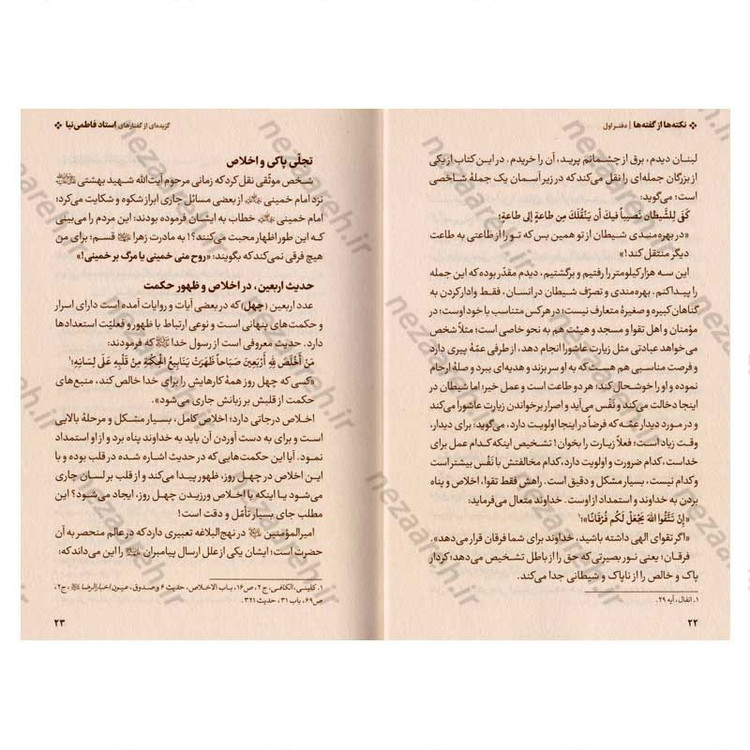 نکته‌ها از گفته‌ها | دفتر اول
لبنان دیدم، برق از چشمانم پرید، آن را خریدم. در این کتاب از یکی
از بزرگان جمله‌ای را نقل می‌کند که در زیر آسمان یک جملهٔ شاخصی
است؛ می‌گوید:
کَفَیٰ لِلشَّیطانِ نَصیباً فیكَ أن یَنقُلَكَ مِن طاعَةٍ إلیٰ طاعَةٍ؛
«در بهره‌مندی شیطان از تو همین بس که تو را از طاعتی به طاعت
دیگر منتقل کند!»
این سه هزار کیلومتر را رفتیم و برگشتیم، دیدم مقدّر بوده که این جمله
را پیدا کنم. بهره‌مندی و تصرّف شیطان در انسان، فقط وادار کردن به
گناهان کبیره و صغیرهٔ متعارف نیست؛ در هر کس متناسب با خود اوست؛ در
مؤمنان و اهل تقوا و مسجد و هیئت هم به نحو خاصی است؛ مثلاً شخص
می‌خواهد عبادتی مثل زیارت عاشورا انجام دهد، از طرفی عمّهٔ پیری دارد
و فرصت مناسبی هم هست که به او سر بزند و هدیه‌ای ببرد و صلهٔ ارحام
نموده و او را خوشحال کند؛ هر دو طاعت است و عمل خیر؛ اما شیطان در
اینجا دخالت می‌کند و نَفْس می‌آید و اصرار بر خواندن زیارت عاشورا می‌کند
و در مورد دیدار عمّه که فرضاً در اینجا اولویت دارد، می‌گوید: برای دیدار،
وقت زیاد است؛ فعلاً زیارت را بخوان! تشخیص اینکه کدام عمل برای
خداست، کدام ضرورت و اولویت دارد، کدام مخالفتش با نَفْس بیشتر است
و کدام نیست، بسیار مشکل و دقیق است. راهش فقط تقوا، اخلاص و پناه
بردن به خداوند و استمداد از اوست. خداوند متعال می‌فرماید:
«إِن تَتَّقُوا اللهَ یَجْعَلْ لَکُم فُرْقَانًا»؛۱
«اگر تقوای الهی داشته باشید، خداوند برای شما فرقان قرار می‌دهد».
فرقان؛ یعنی نور بصیرتی که حق را از باطل تشخیص می‌دهد؛ کردار
پاک و خالص را از ناپاک و شیطانی جدا می‌کند.
۱. انفال، آیه ۲۹.
۲۲
گزیده‌ای از گفتارهای استاد فاطمی‌نیا
تجلّی پاکی و اخلاص
شخص موثّقی نقل کرد که زمانی مرحوم آیت‌الله شهید بهشتی
نزد امام خمینی از بعضی مسائل جاری ابراز شکوه و شکایت می‌کرد؛
امام خمینی خطاب به ایشان فرموده بودند: این مردم را می‌بینی
که این طور اظهار محبت می‌کنند؟! به مادرت زهرا قسم؛ برای من
هیچ فرقی نمی‌کند که بگویند: «روح منی خمینی یا مرگ بر خمینی!»
حدیث اربعین، در اخلاص و ظهور حکمت
عدد اربعین (چهل) که در بعضی آیات و روایات آمده است دارای اسرار
و حکمت‌های پنهانی است و نوعی ارتباط با ظهور و فعلیّت استعدادها
دارد. حدیث معروفی است از رسول خدا که فرمودند:
مَنْ أَخْلَصَ لِلّٰهِ أَرْبَعِینَ صَبَاحاً ظَهَرَتْ یَنَابِیعُ الْحِکْمَةِ مِنْ قَلْبِهِ عَلَیٰ لِسَانِهِ؛۱
«کسی که چهل روز همهٔ کارهایش را برای خدا خالص کند، منبع‌های
حکمت از قلبش بر زبانش جاری می‌شود».
اخلاص درجاتی دارد؛ اخلاص کامل، بسیار مشکل و مرحلهٔ بالایی
است و برای به دست آوردن آن باید به خداوند پناه برد و از او استمداد
نمود. آیا این حکمت‌هایی که در حدیث اشاره شده در قلب بوده و با
این اخلاص در چهل روز، ظهور پیدا می‌کند و از قلب بر لسان جاری
می‌شود یا اینکه با اخلاص ورزیدن چهل روز، ایجاد می‌شود؟ این
مطلب جای بسیار تأمّل و دقت است!
امیرالمؤمنین در نهج‌البلاغه تعبیری دارد که در عالم منحصر به آن
حضرت است؛ ایشان یکی از علل ارسال پیامبران را این می‌داند که:
۱. کلینی، الکافی، ج۲، ص۱۶، باب الاخلاص، حدیث ۶ و صدوق، عیون اخبار الرضا، ج۲،
ص۶۹، باب ۳۱، حدیث ۳۲۱.
۲۳
nezaareh.ir